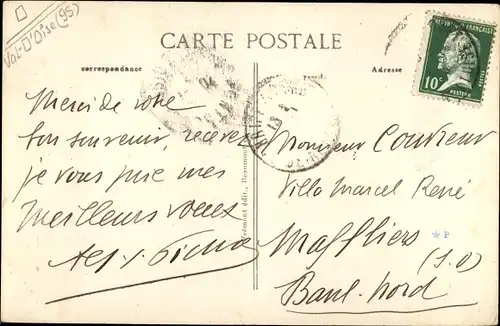 Val-D'Oise (95)
CARTE POSTALE
correspondance
Adresse
RÉPUBLIQUE FRANÇAISE
10c
POSTES
Merci de votre
bon souvenir, recevez
je vous prie mes
meilleurs voeux
Monsieur Couvreur
Villa Marcel René
Maffliers
(S.O)
Banl. Nord
édit., Beaumont